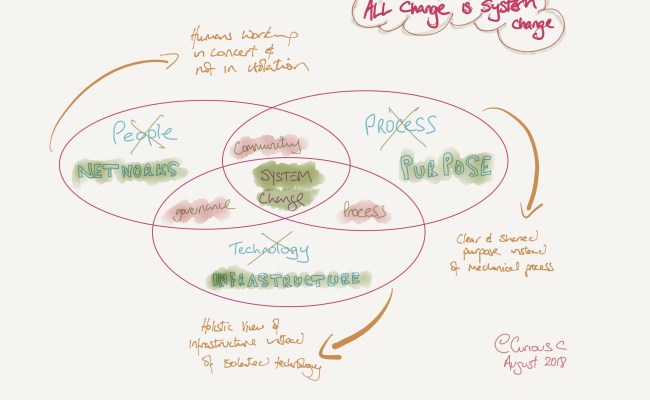 ALL Change is System
change
Humans working
in concert &
not in isolation
People
NETWORKS
Community
PROCESS
PURPOSE
SYSTEM
Change
governance
Process
Technology
INFRASTRUCTURE
Clear & shared
purpose instead
of mechanical process
Holistic view of
infrastructure instead
of isolated technology
@Curious C
August 2018